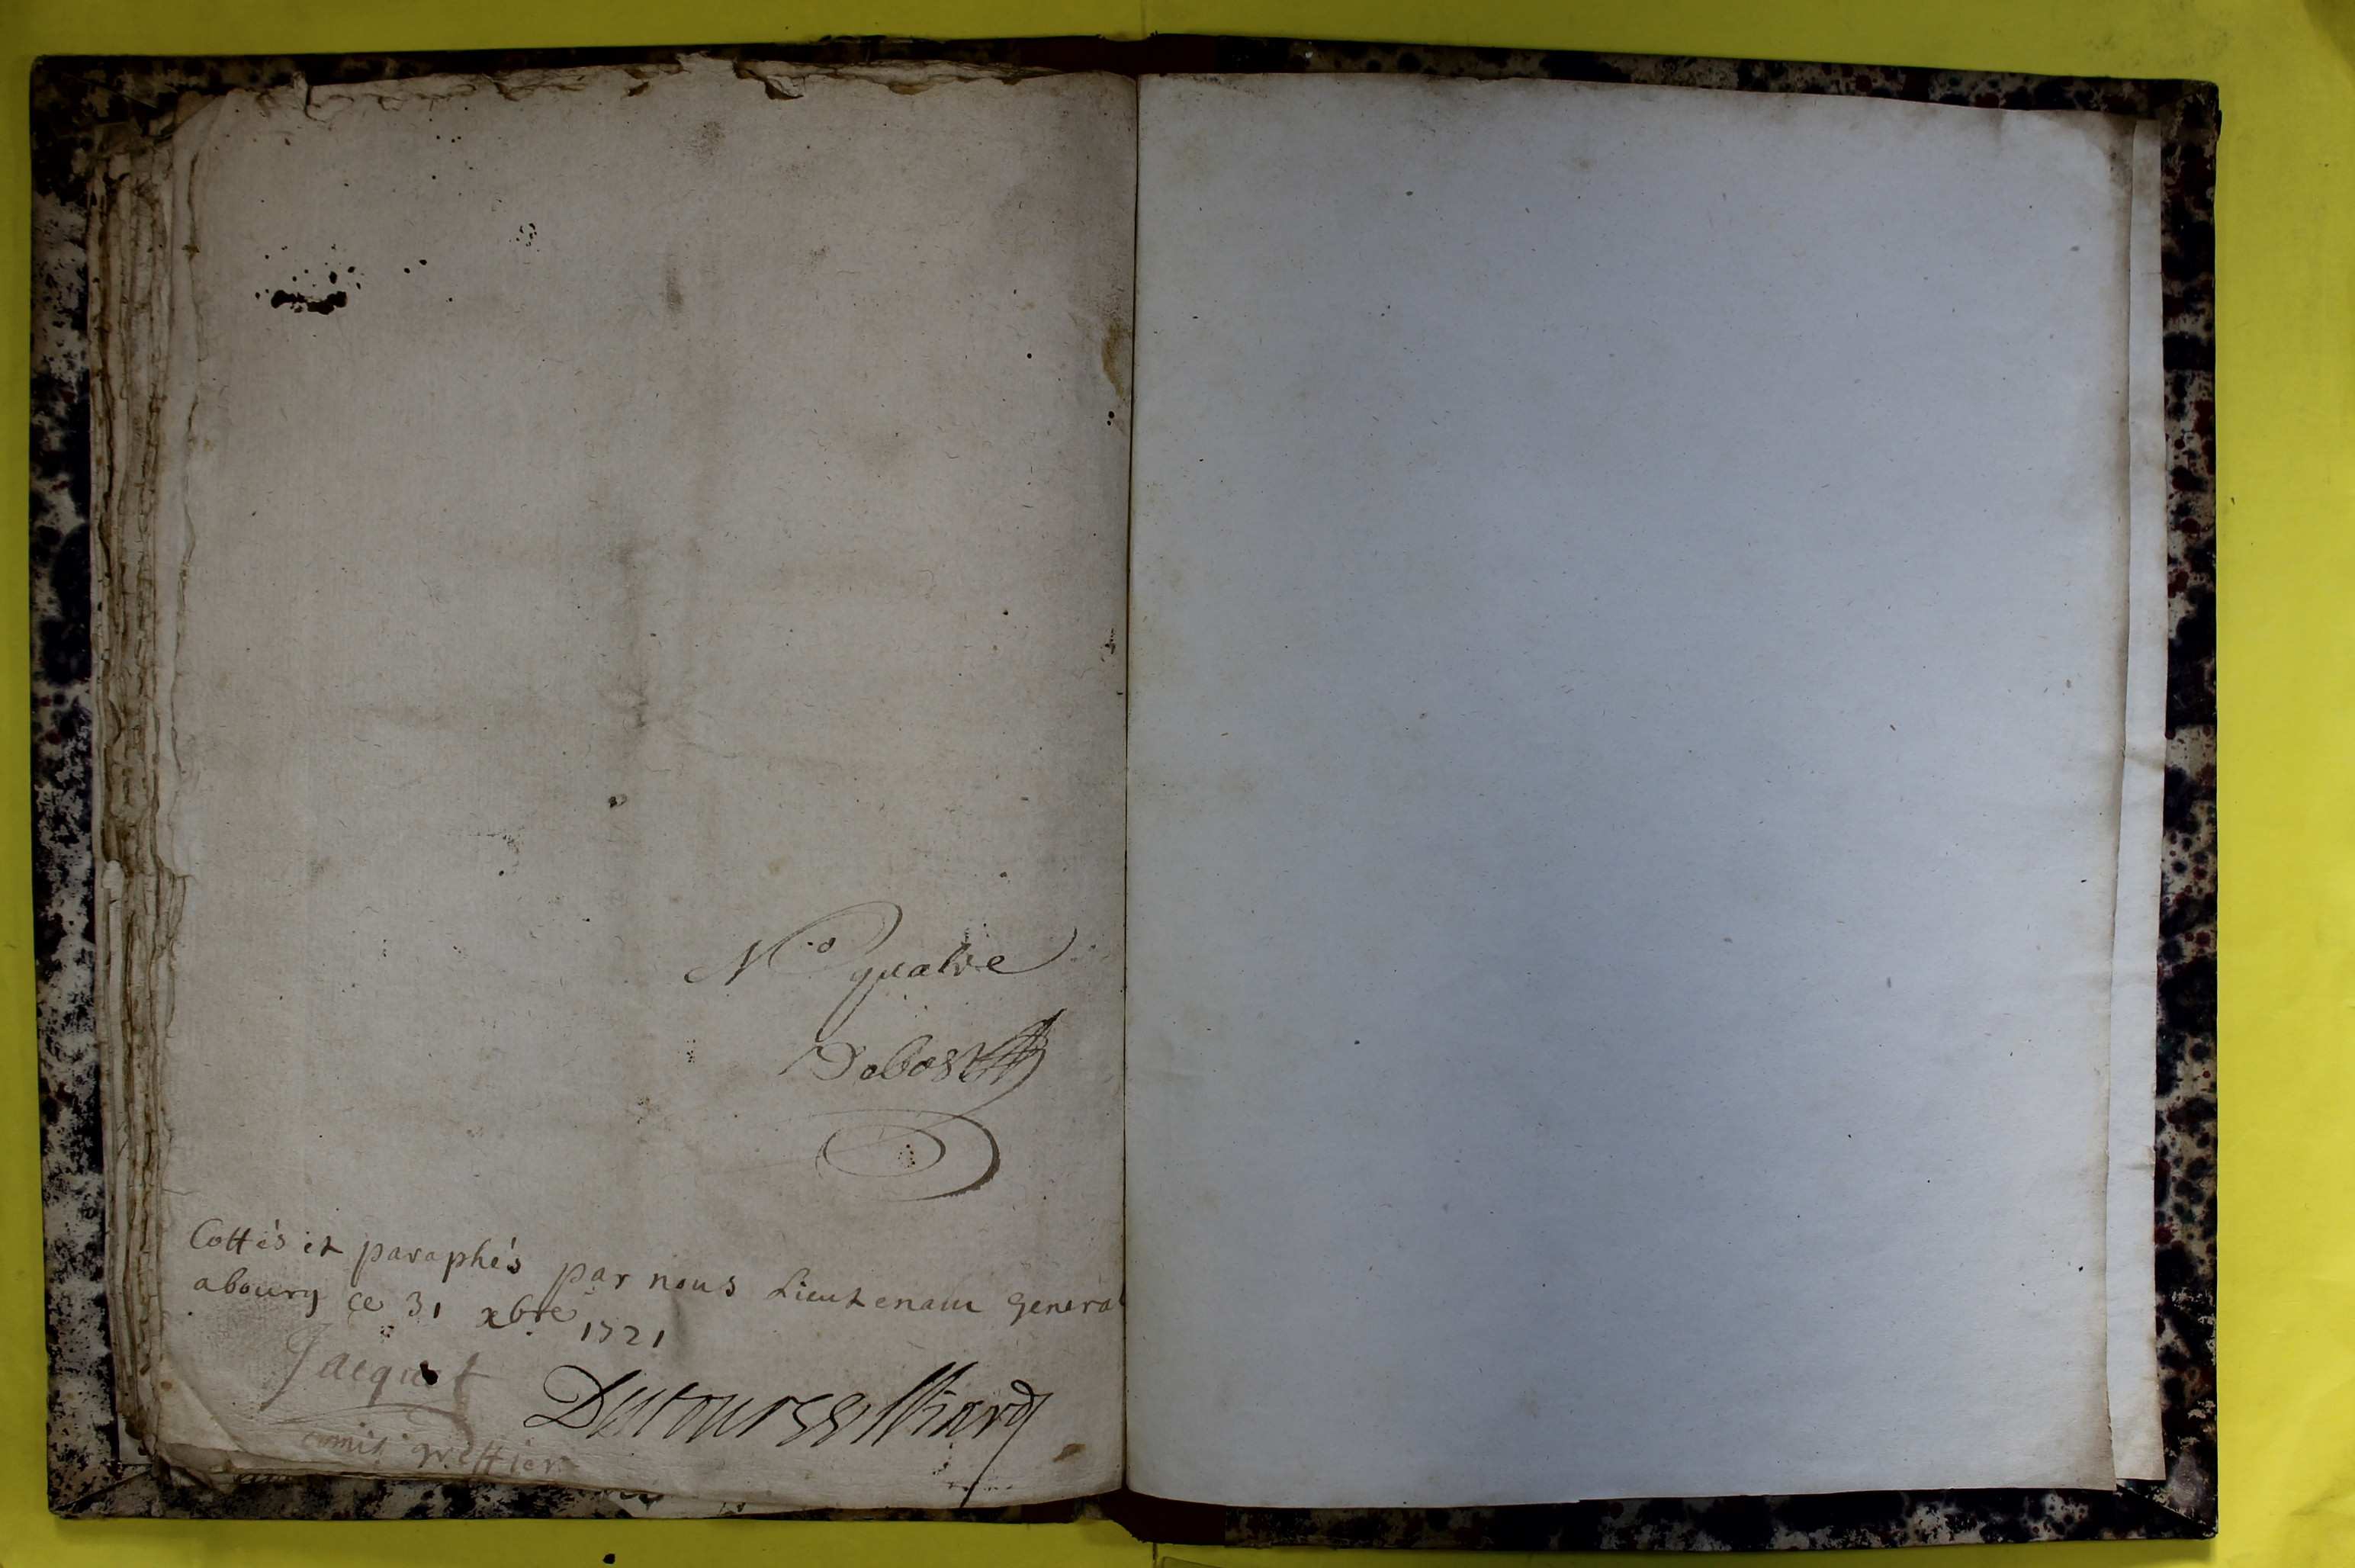 N.o quatre
Debost
Cottés et paraphés par nous Lieutenant general
abourg ce 31 xbre 1721
Jacquet
comis greffier